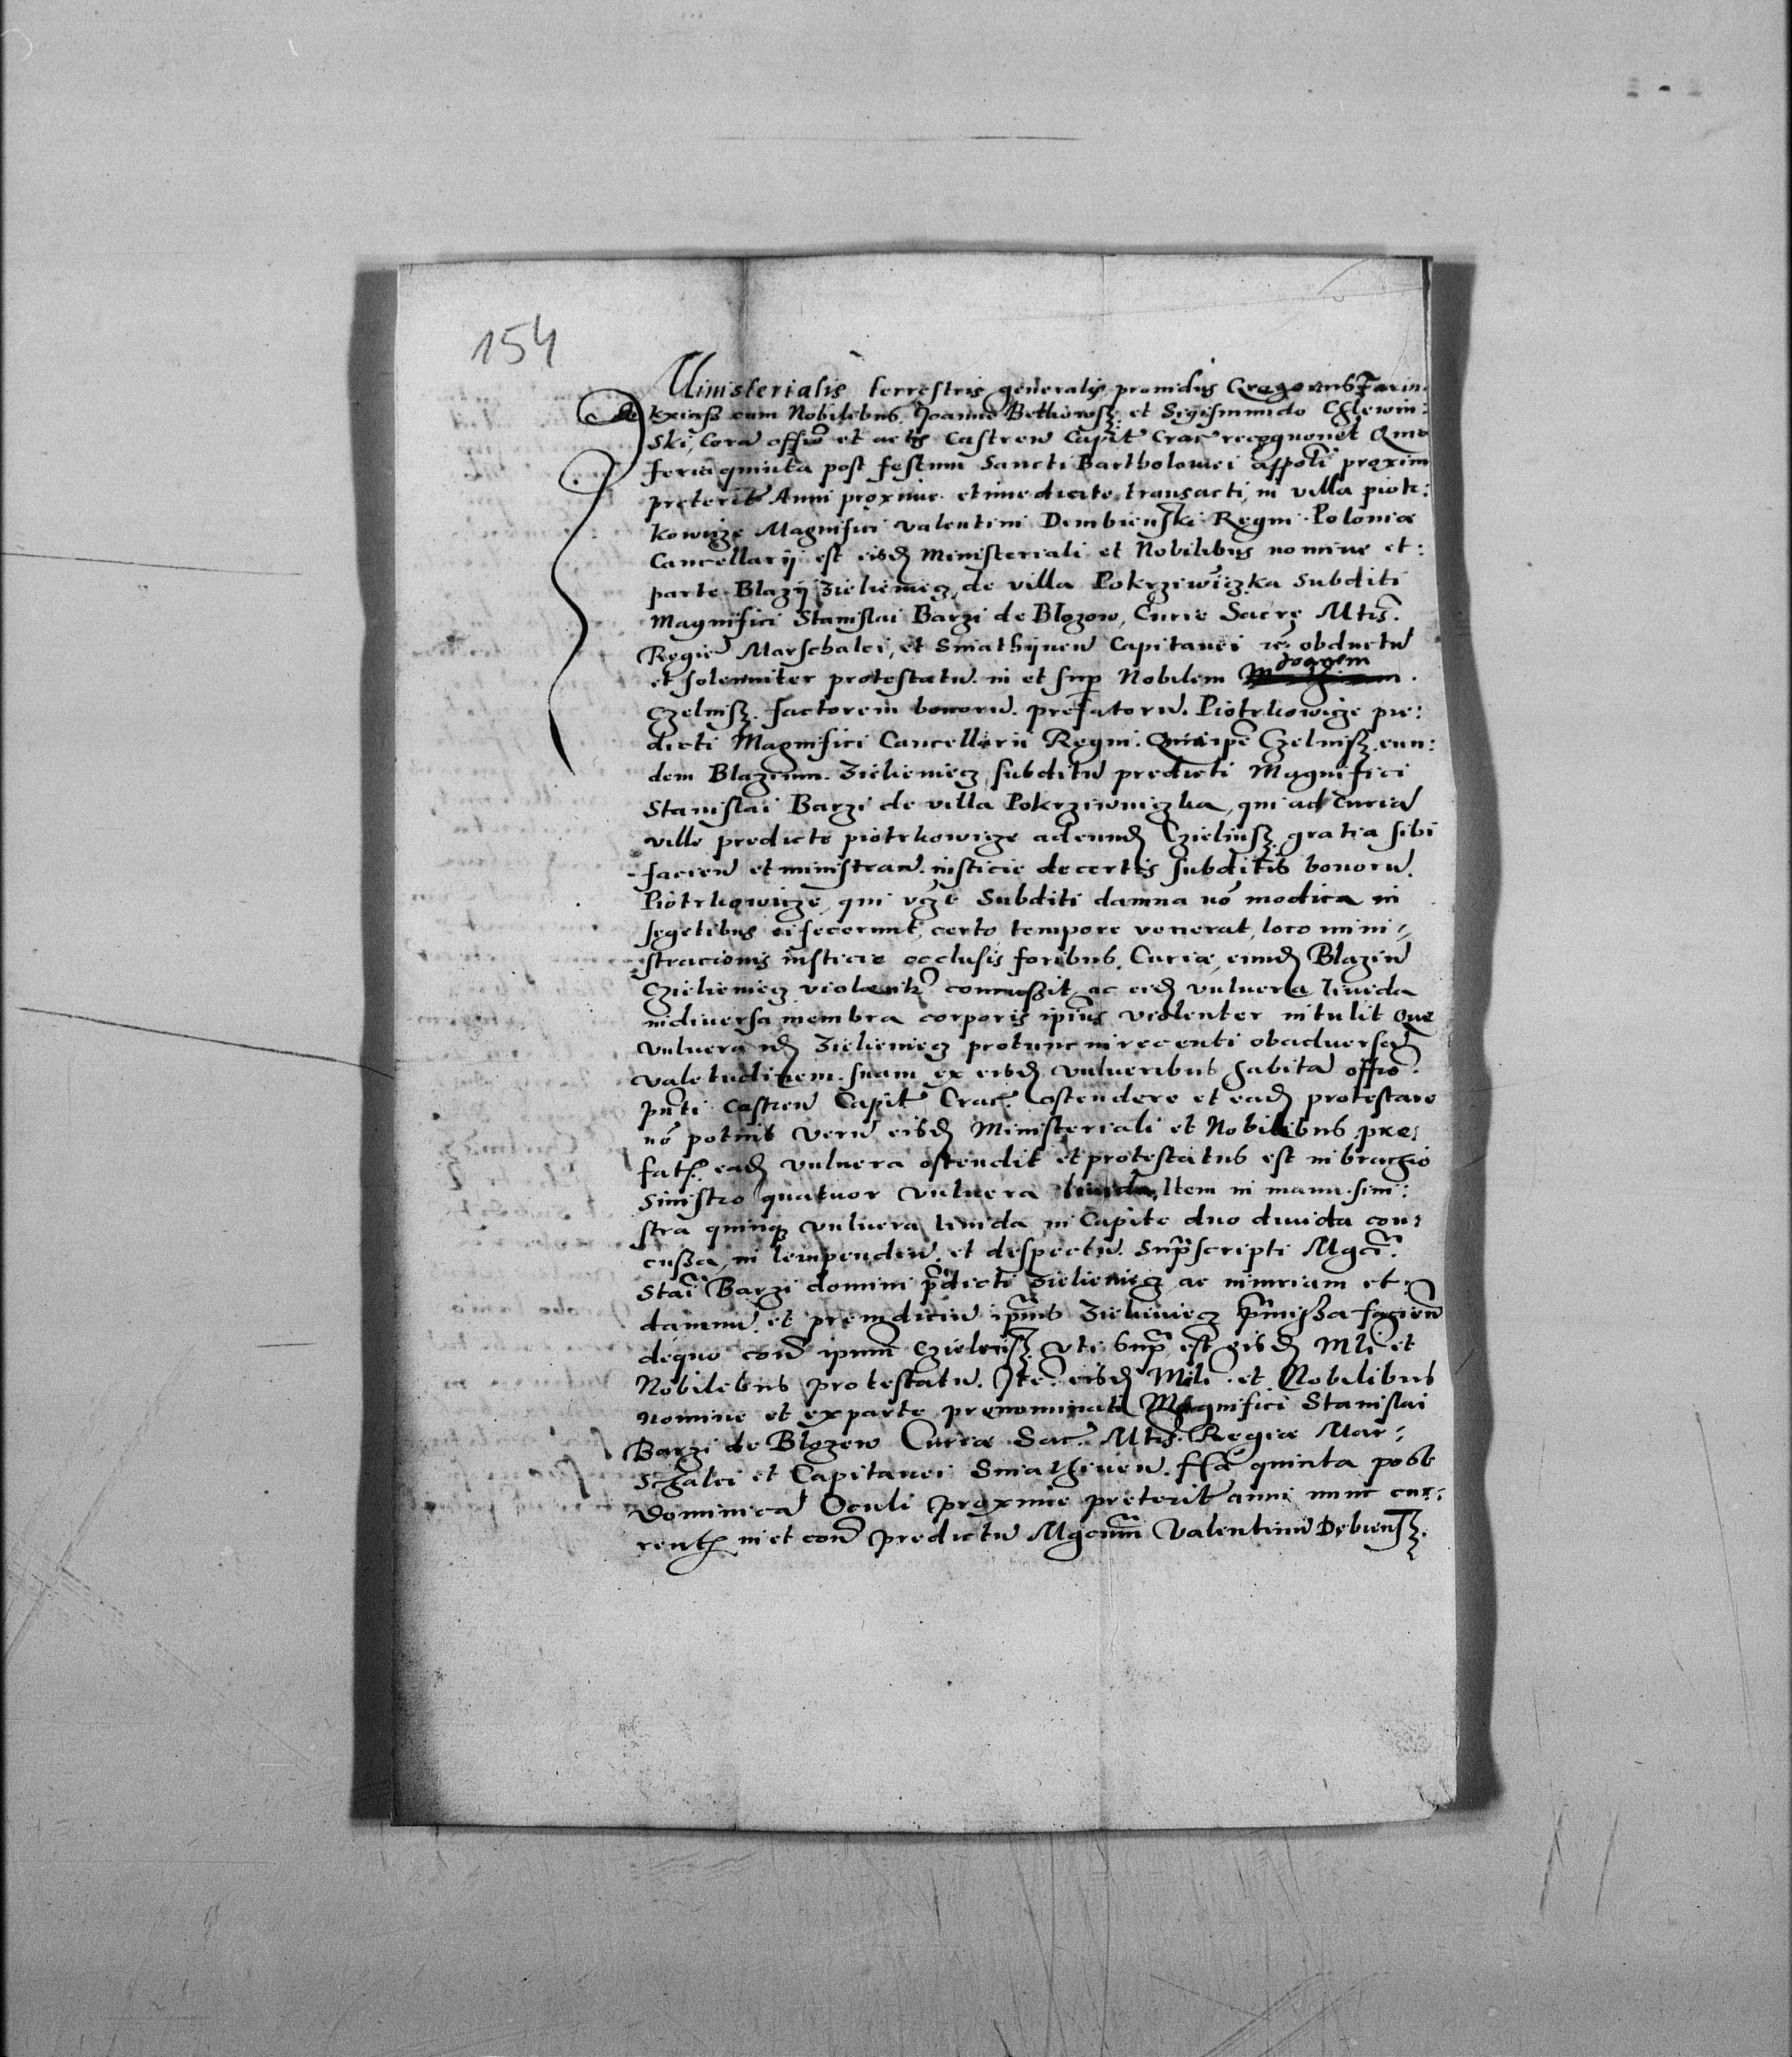 154
Ministerialis terrestris generalis providus Gregorius
cum Nobilibus Joanne Bethowsz et Sigismundo Chlewin:
ski, Corã offitõ et actis Castreñ Capit Crac recognovit Quia
feria quinta post festum Sancti Bartholomei appoli proxim
preterit Anni proxime et imediate transacti, in villa piotr:
kowicze Magnifici Valentini Dembienski Regni Poloniæ
Cancellarij est eisd Ministeriali et Nobilibus nomine et:
parte Blazij Zieliemiecz de villa Pokrziwiczka Subditi
Magnifici Stanislai Barzi de Blozow, Curie Sacre Mtis.
Regie Marschalci, et Sniathijneñ Capitanei obductũ
et solenniter protestatũ in et sup Nobilem
Czelnisz factorem bonorũ prefatorũ Piotrkowicze pre:
dicti Magnifici Cancellarii Regni. Quia ipe Czelnisz eun:
dem Blazium Zieliemiecz subditũ predicti Magnifici
Stanislai Barzi de villa Pokrziwniczka, qui ad Curiã
ville predicte piotrkowicze adeund Czielnisz gratia sibi
facieñ et ministrañ iusticie de certis subditis bonorũ
Piotrkowicze, qui vcze Subditi damna nõ modica in
segetibus ei fecerunt, certo tempore venerat, loco mini-
stracionis iusticie occlusis foribus Curiæ, eund Blaziũ
Czieliemiecz violenter concussit, ac eid vulnera livida
in diversa membra corporis ipius violenter intulit Que
vulnera id Zieliemiecz protunc in recenti ob adversã
valetudinem suam ex eisd vulneribus habitã offio
pnti Castreñ Capit Crac ostendere et ead protestare
nõ potuit Verũ eisd Ministeriali et Nobilibus pre:
fat ead vulnera ostendit et protestatus est in brachio
Sinistro quatuor vulnera livida, Item in manu sini:
stra quinq vulnera livida in Capite duo divida con:
cussa, in et despectũ Suprascripti Mgci
Stai Barzi domini pdicti Zieliemiecz ac iniuriam et
damnũ et preiudiciũ ipius Zieliemiecz pmissa facieñ
de quo corã ipum Czielnisz uti supra est eisd Mli et
Nobilibus protestatũ. Ite eisd Mili et Nobilibus
nomine et ex parte prenominati Magnifici Stanislai
Barzi de Blozew Curiæ Sac Mtis Regiæ Mar:
schalci et Capitanei Sniathineñ. ffa quinta post
Dominicã Oculi proxime preterit anni nunc cur:
rent in et con predictũ Mgcum Valentinũ Debiensz.